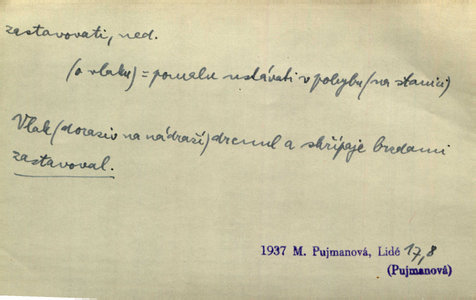 zastavovati, ned.
(o vlaku) = pomalu ustávati v pohybu (na stanici)
Vlak (doraziv na nádraží) drcnul a skřípaje brzdami
zastavoval.
1937 M. Pujmanová, Lidé 17,8
(Pujmanová)